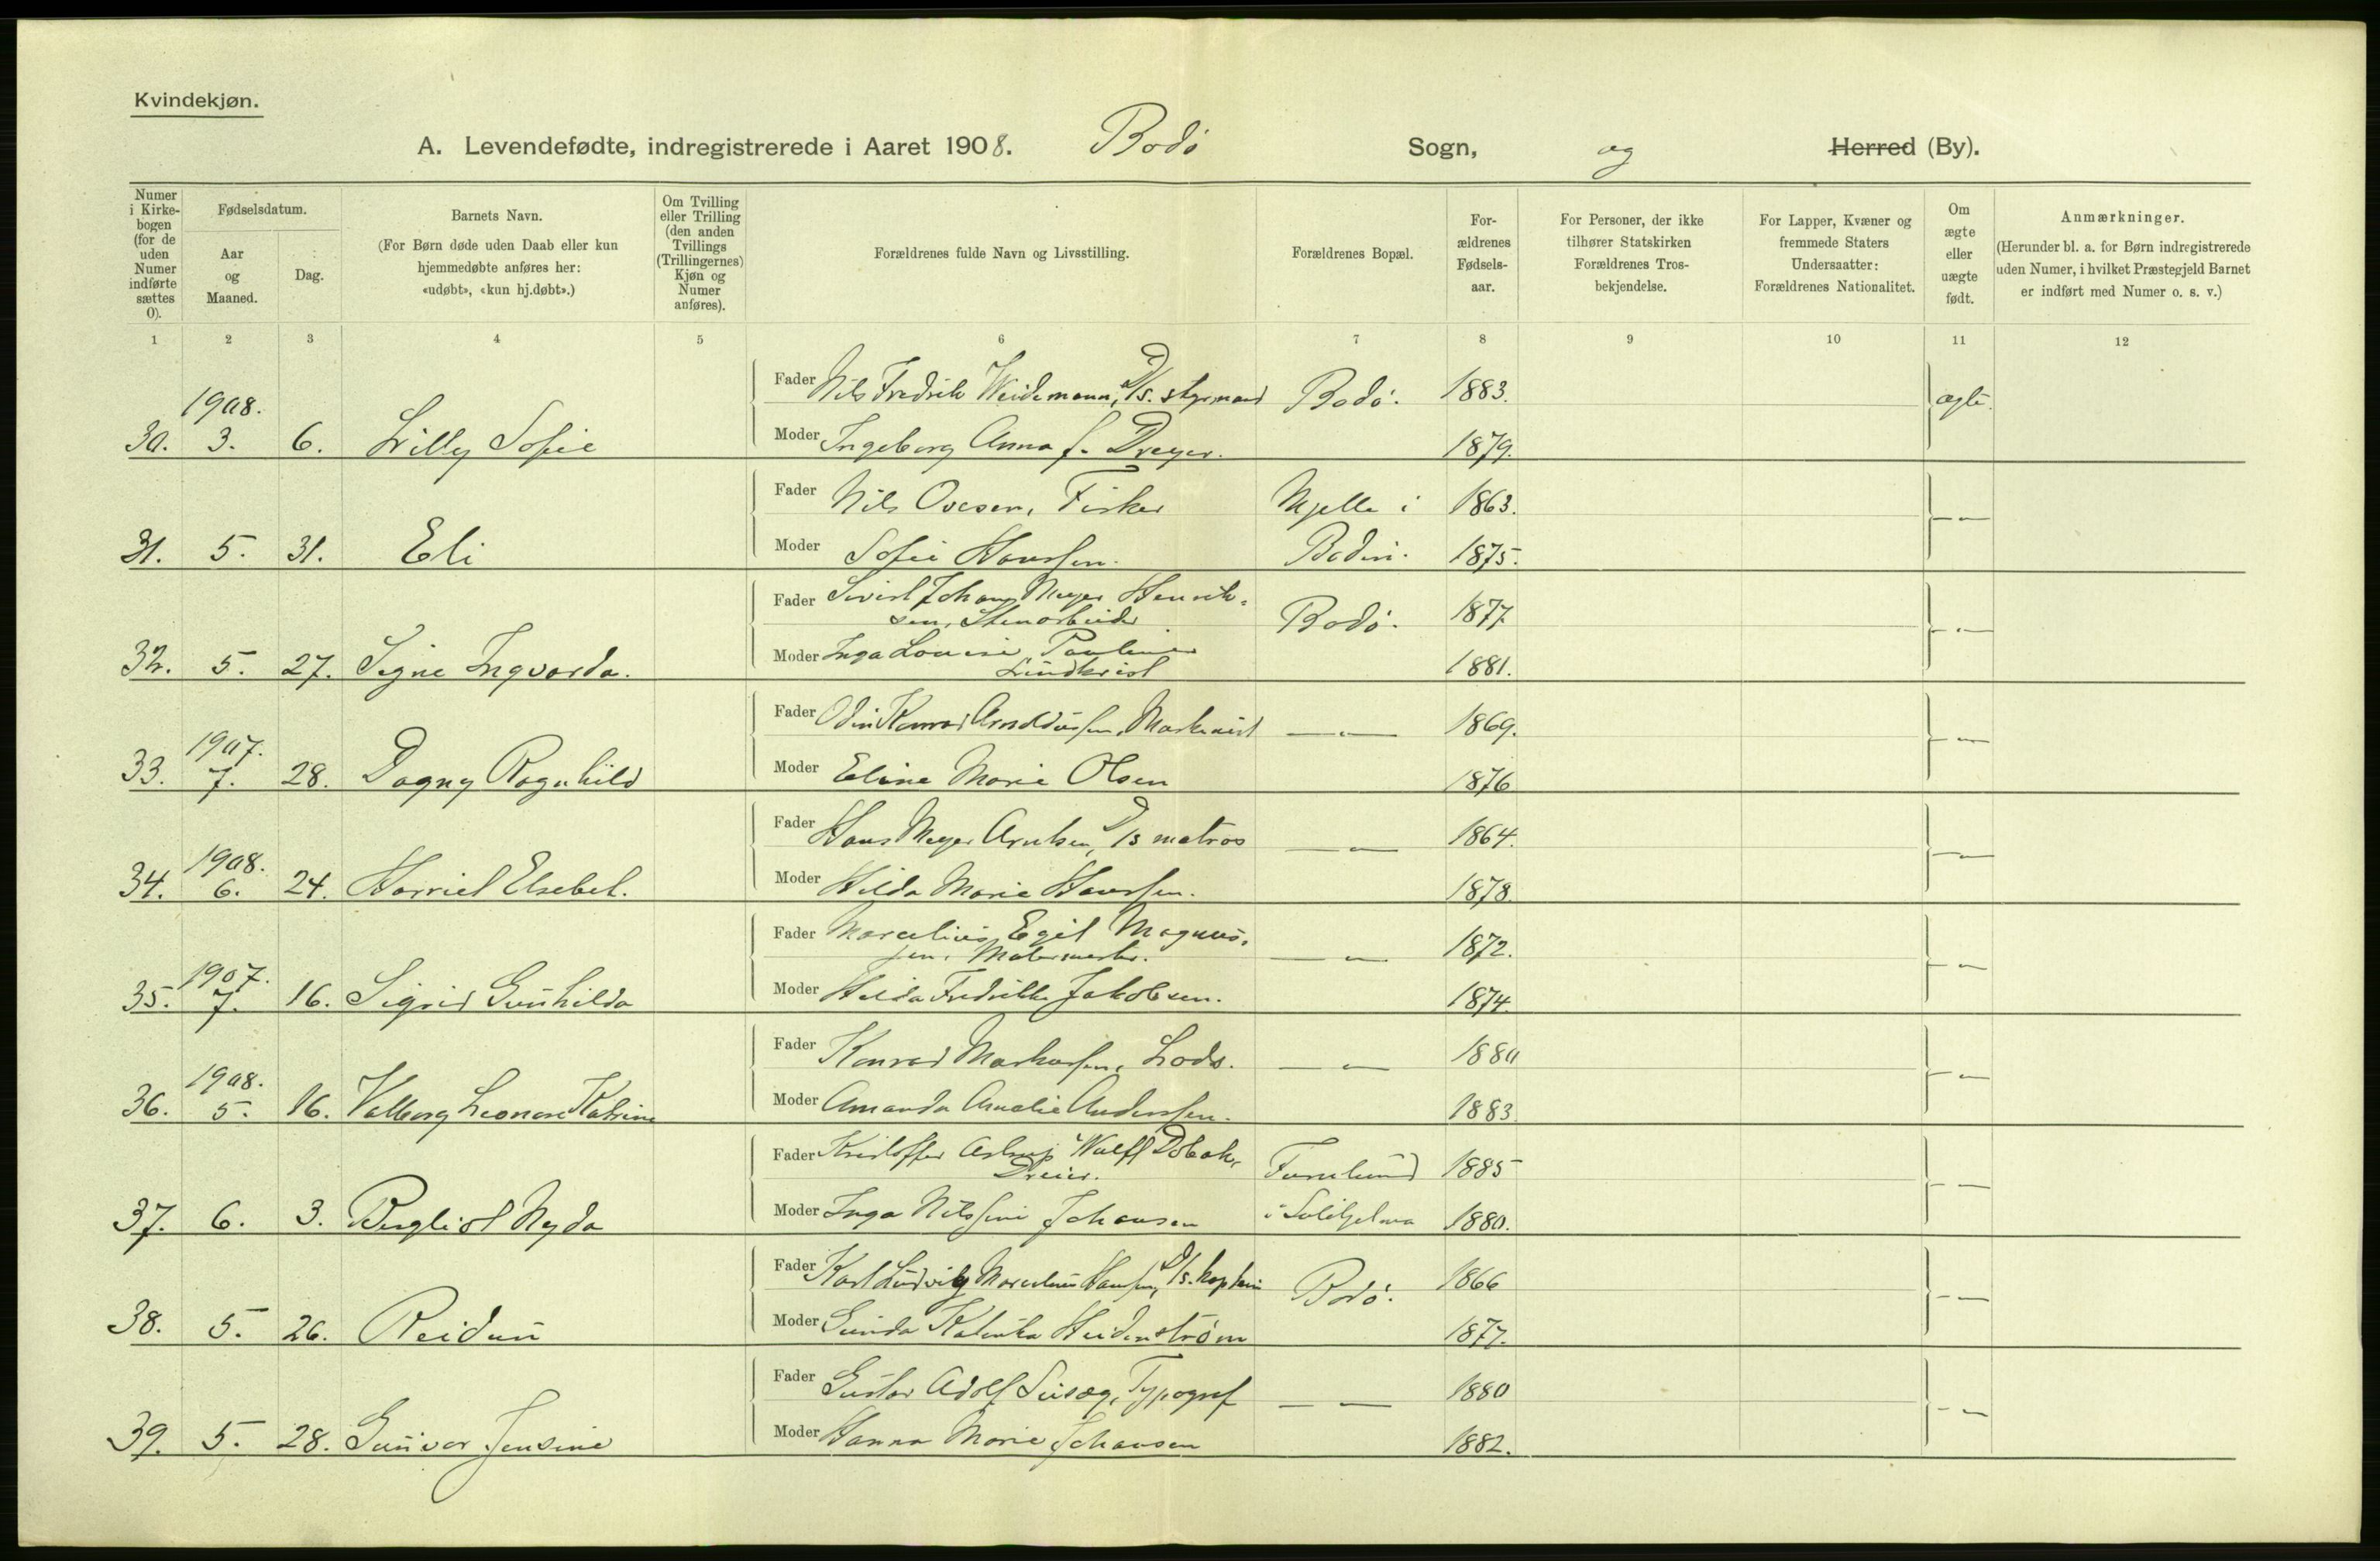 Kvindekjøn.
A. Levendefødte, indregistrerede i Aaret 1908. Bodø Sogn, og Herred (By).
Numer i Kirkebogen (for de uden Numer indførte sættes 0).
Fødselsdatum.
Aar og Maaned.
Dag.
Barnets Navn.
(For Børn døde uden Daab eller kun hjemmedøbte anføres her: «udøbt», «kun hj.døbt».)
Om Tvilling eller Trilling (den anden Tvillings (Trillingernes) Kjøn og Numer anføres).
Forældrenes fulde Navn og Livsstilling.
Forældrenes Bopæl.
Forældrenes Fødselsaar.
For Personer, der ikke tilhører Statskirken Forældrenes Trosbekjendelse.
For Lapper, Kvæner og fremmede Staters Undersaatter: Forældrenes Nationalitet.
Om ægte eller uægte født.
Anmærkninger.
(Herunder bl. a. for Børn indregistrerede uden Numer, i hvilket Præstegjeld Barnet er indført med Numer o. s. v.)
1 2 3 4 5 6 7 8 9 10 11 12
Fader Nils Fredrik Weidemann, D/s. styrmand Bodø. 1883. ægte.
1908.
30. 3. 6. Lilly Sofie Moder Ingeborg Anna f. Dreyer. 1879.
Fader Nils Ovesen, Fisker Mjelle i 1863. — " —
31. 5. 31. Eli Moder Sofie Hanssen. Bodin. 1875.
Fader Sivert Johan Meyer Henrik-
sen, Stenarbeider Bodø. 1877 — " —
32. 5. 27. Signe Ingvarda. Moder Inga Lovise Pauline
Lindkvist 1881.
Fader Odin Konrad Arnoldussen, Maskinist — " — 1869. — " —
1907.
33. 7. 28. Dagny Ragnhild Moder Eline Marie Olsen 1876
Fader Hans Meyer Arntsen, D/s matros — " — 1864. — " —
1908.
34. 6. 24. Harriet Elsebet. Moder Hilda Marie Hanssen. 1878.
Fader Marcelius Egil Magnus-
sen, Malermester. — " — 1872. — " —
1907.
35. 7. 16. Sigrid Gunhilda Moder Hilda Fredrikke Jakobsen. 1874.
Fader Konrad Markussen, Lods. — " — 1880 — " —
1908.
36. 5. 16. Valborg Leonore Katrine Moder Amanda Amalie Anderssen. 1883.
Fader Kristoffer Astrup Wulff Dobak,
Dreier. Furulund 1885 — " —
37. 6. 3. Bergliot Nyda Moder Inga Nilssine Johansen i Sulitjelma 1880.
Fader Karl Ludvig Marselius Hansen, D/s. kaptein Bodø. 1866 — " —
38. 5. 26. Reidun Moder Gunda Katinka Heidenstrøm 1877.
Fader Gustav Adolf , Typograf — " — 1880 — " —
39. 5. 28. Gunvor Jensine Moder Hanna Marie Johansen 1882.